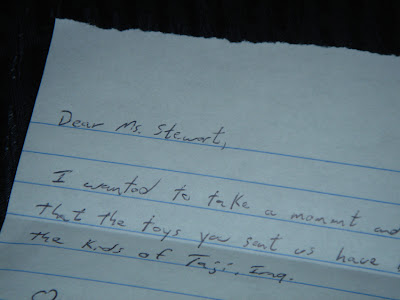 Dear Ms. Stewart,
I wanted to take a mommt and
that the toys you sent us have
the kids of Taji, Iraq.